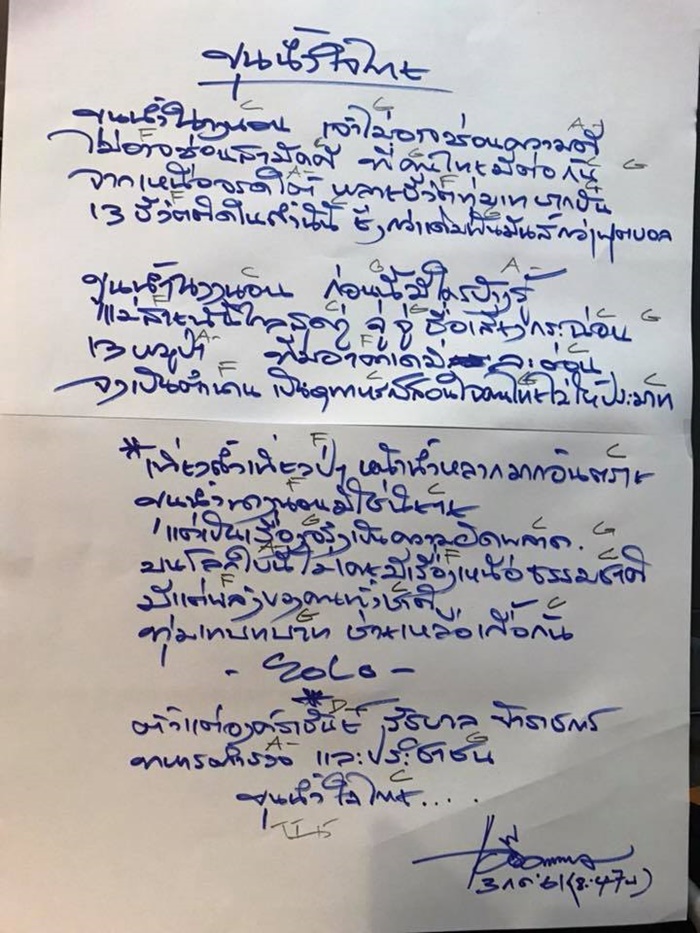 ขุนน้ำใจไทย
ขุนน้ำนางนอน เจ้าไม่อาจซ่อนความดี
ไม่อาจซ่อนสามัคคี ที่คนไทยมีต่อกัน
จากเหนือจรดใต้ หลายชีวิตทุ่มเท บากบั่น
13 ชีวิตติดในถ้ำนี้ ยิ่งกว่า
ขุนน้ำนางนอน ก่อนนี้มีใครบ้างรู้
แม่สายนี้ไกลสุดกู่ จู่จู่ ชื่อเสียงกระฉ่อน
13 หมูป่า ทีมอาคาเดมี่ ละอ่อน
จงเป็นตำนาน เป็นอุทาหรณ์สอนใจคนไทยไม่ให้ประมาท
*เที่ยวถ้ำเที่ยวป่า หน้าน้ำหลากมากอันตราย
ขุนน้ำนางนอนมิใช่นิยาย
แต่เป็นเรื่องจริงเป็นความผิดพลาด
บนโลกใบนี้ ไม่เคยมีเรื่องเหนือธรรมชาติ
มีแต่พลังของคนทั้งชาติ
ทุ่มเทบทบาท ช่วยเหลือเกื้อกัน
- SOLO -
*
ตั้งแต่องค์ราชันย์ รัฐบาล ข้าราชการ
ทหารตำรวจ และประชาชน
ขุนน้ำใจไทย.....
3 กค 61 (8:47น)